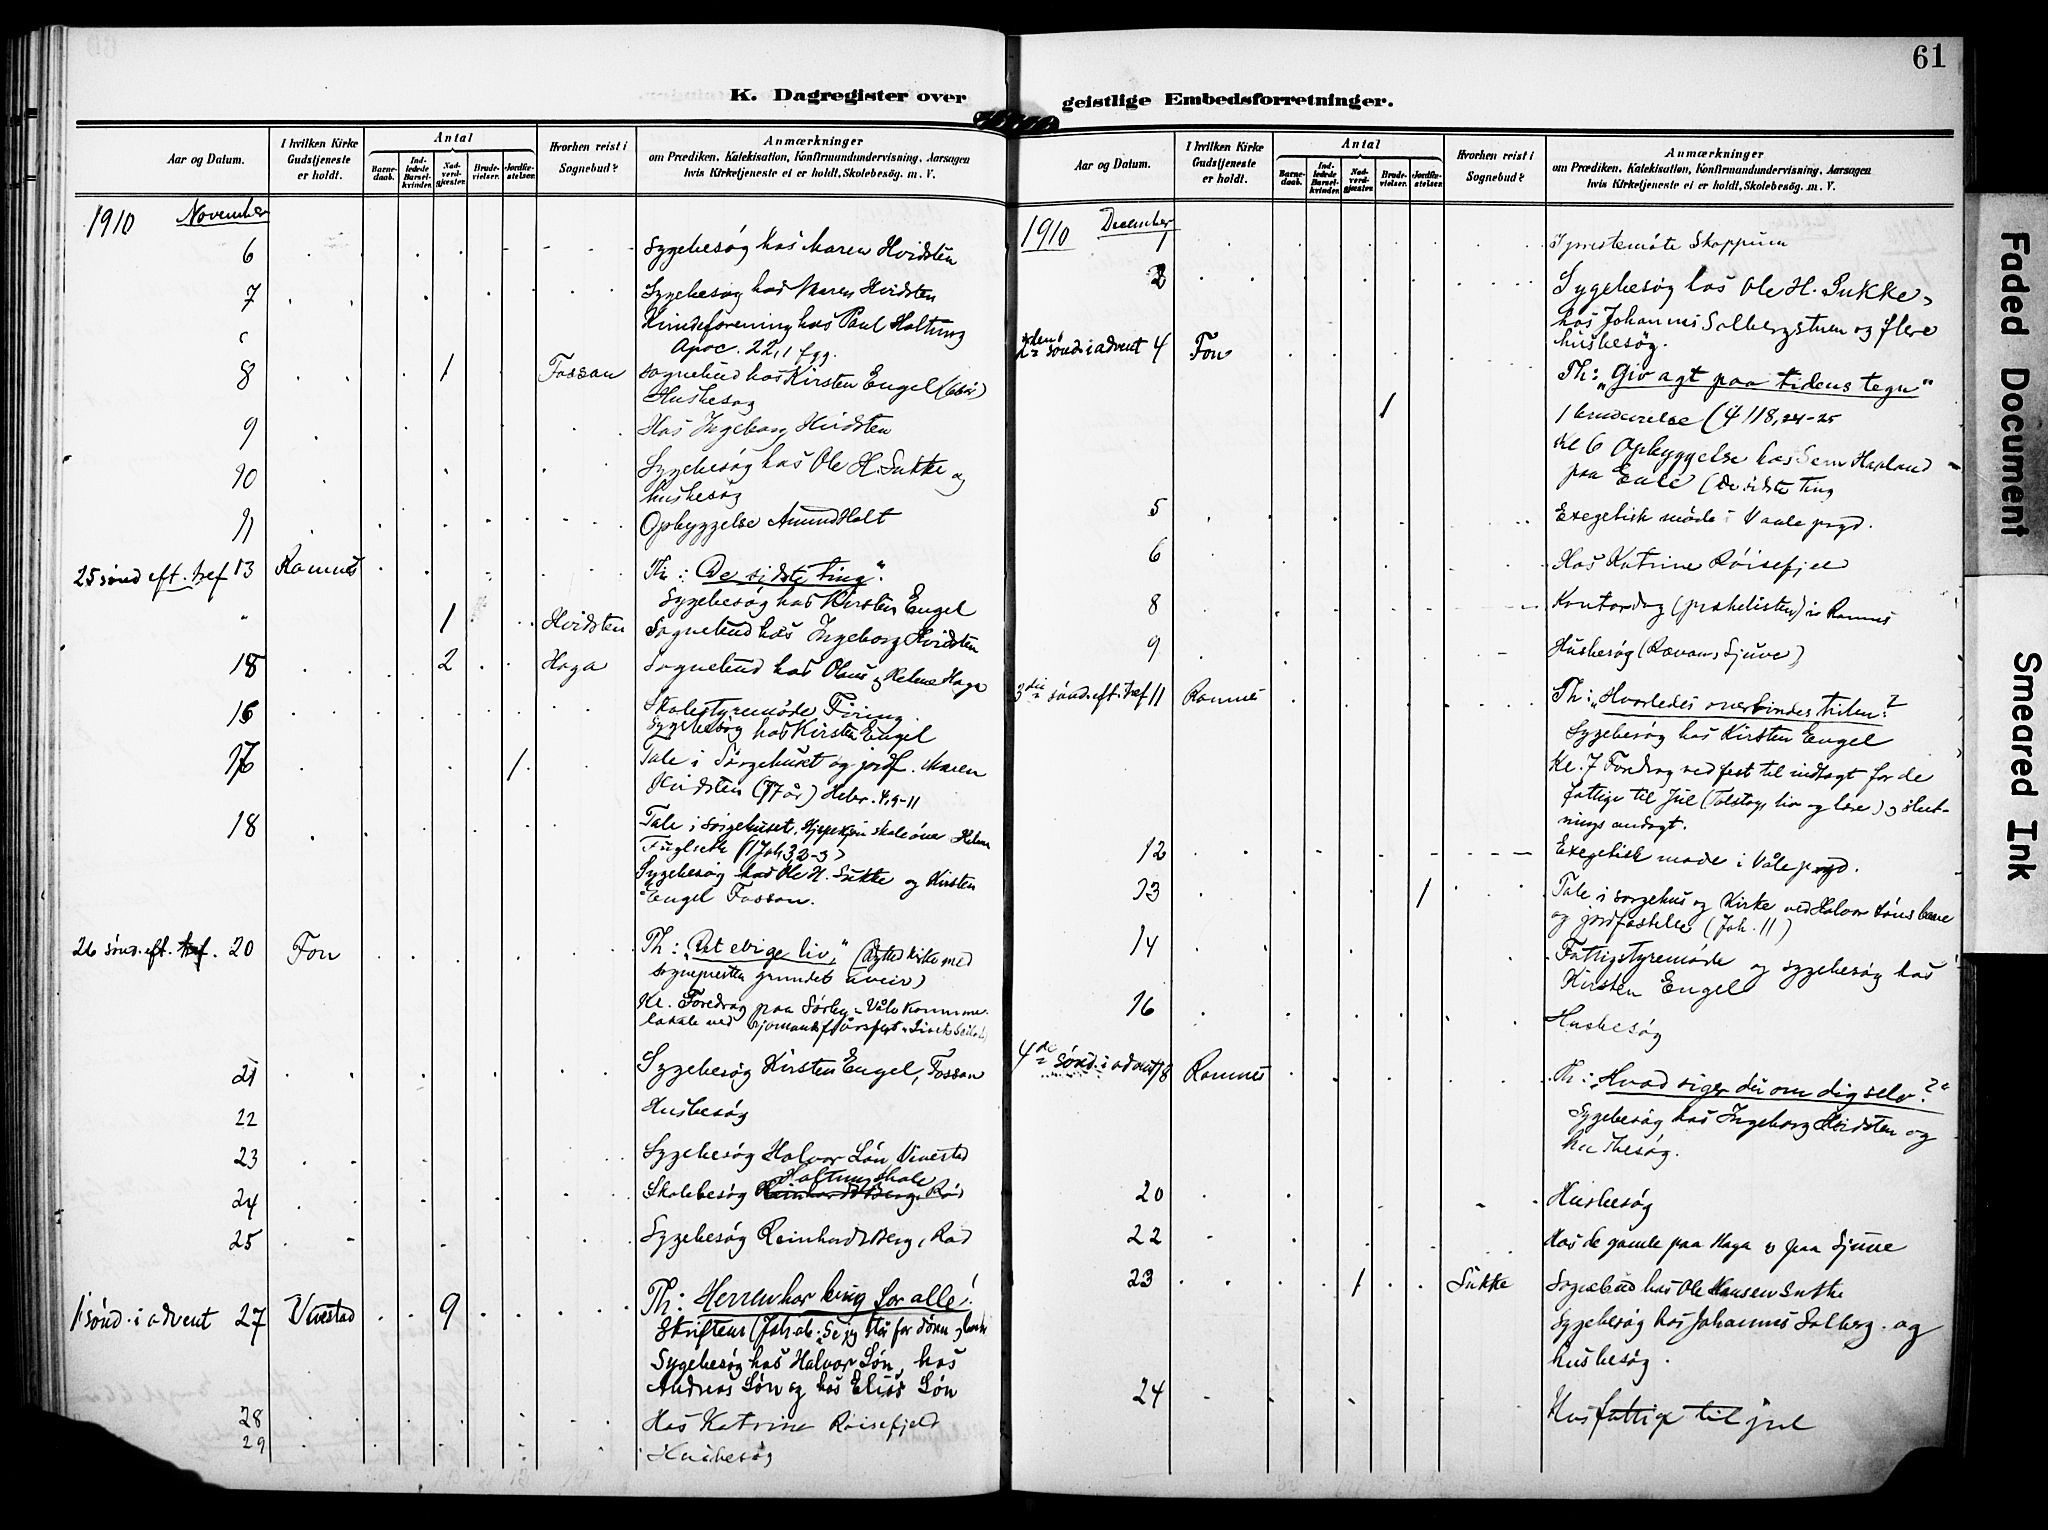 61
K. Dagregister over
Aar og Datum.
I hvilken Kirke Gudstjeneste er holdt.
Antal
Barne-daab.
Ind-ledede Barsel-kvinder.
Nad-verd-gjæster.
Brude-vielser.
Jordfæ-stelser.
Hvorhen reist i Sognebud?
Anmærkninger
om Prædiken, Katekisation, Konfirmandundervisning, Aarsagen
hvis Kirketjeneste ei er holdt, Skolebesög. m. V.
1910 November
6 Sygebesøg hos Maren Hvidsten
7 Sygebesøg hos Maren Hvidsten
Kvindeforening hos Paul Holtung
Apoc. 22,1 fgg.
8 1 Fossan Sognebud hos Kirsten Engel
Husbesøg
9 Hos Ingeborg Hvidsten
10 Sygebesøg hos Ole H. Sukke og
husbesøg
11 Opbyggelse Amund Holt
25 sønd eft. tref 13 Ramnes Th: "De sidste ting".
Sygebesøg hos Kirsten Engel
" 1 Hvidsten Sognebud hos Ingeborg Hvidsten
15 2 Haga Sognebud hos Olaus og Haga
16 Skolestyremøde
Sygebesøg hos Kirsten Engel
17 1 Tale i Sørgehuset og jordf. Maren
Hvidsten (77 år) Hebr. 4,9-11
18 Tale i sørgehuset,
Fuglseth (1 Joh 3,2-3)
Sygebesøg hos Ole H. Sukke og Kirsten
Engel Fossan.
26 sønd. eft. tref. 20 Fon Th: "Det evige liv" (Bytted kirke med
sognepresten grundet uveir)
Kl. Foredrag paa Sørby - Våle Kommune-
lokale ved
21 Sygebesøg Kirsten Engel, Fossan
22 Husbesøg
23 Sygebesøg Halvor Løn Vivestad
24 Skolebesøg Holtung skole
25 Sygebesøg Reinhardt Berg, Rød
1 sønd. i advent 27 Vivestad 9 Th: Herren har brug for alle!
Skriftem (Joh. ab: Se jeg står for døren og banker
Sygebesøg hos Halvor Løn, hos
Andreas Løn og hos Elias Løn
28 Hos Katrine Røisefjeld
29 Husbesøg
geistlige Embedsforretninger.
Aar og Datum.
I hvilken Kirke Gudstjeneste er holdt.
Antal
Barne-daab.
Ind-ledede Barsel-kvinder.
Nad-verd-gjæster.
Brude-vielser.
Jordfæ-stelser.
Hvorhen reist i Sognebud?
Anmærkninger
om Prædiken, Katekisation, Konfirmandundervisning, Aarsagen
hvis Kirketjeneste ei er holdt, Skolebesög. m. V.
1910 December
1 I prestemøte Skoppum
2 Sygebesøg hos Ole H. Sukke,
hos Johannes Solbergstuen og flere
husbesøg.
2den sønd. i advent 4 Fon Th: "Giv agt paa tidens tegn"
1 1 brudevielse (ψ 118,24-25
Kl 6 Opbyggelse hos
paa (De sidste ting
5 Exegetisk møde i Vaale prgd.
6 Hos Katrine Røisefjeld
8 Kontordag i Ramnes
9 Husbesøg (Rævan, Sjuve)
3die sønd. eft. tref 11 Ramnes Th: "Hvorledes overvindes tvilen?"
Sygebesøg hos Kirsten Engel
Kl. 7 Foredrag ved fest til indtægt for de
fattige til Jul (Tolstoys liv og lære) og slut-
nings andagt.
12 Exegetisk møde i Våle prgd.
13 1 Tale i sørgehus og Kirke ved Halvor Løns baare
og jordfæstelse (Joh. 11)
14 Fattigstyremøde og sygebesøg hos
Kirsten Engel
16 Husbesøg
4de sønd. i advent 18 Ramnes Th: "Hvad siger du om dig selv?"
Sygebesøg hos Ingeborg Hvidsten og
husbesøg.
20 Husbesøg
22 Hos de gamle paa Haga og paa Sjuve
23 1 Sukke Sognebud hos Ole Hansen Sukke
Sygebesøg hos Johannes Solberg og
husbesøg.
24 Hos fattige til jul
Faded Document
Smeared Ink